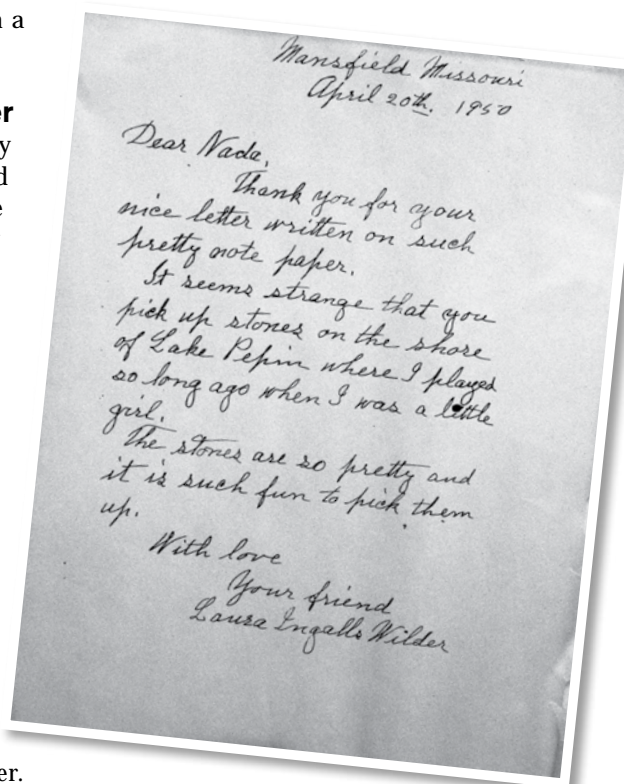 a
er
y
d
e
Mansfield Missouri
April 20th. 1950
Dear Nada,
Thank you for your
nice letter written on such
pretty note paper.
It seems strange that you
pick up stones on the shore
of Lake Pepin where I played
so long ago when I was a little
girl.
The stones are so pretty and
it is such fun to pick them
up.
With love
Your friend
Laura Ingalls Wilder
er.